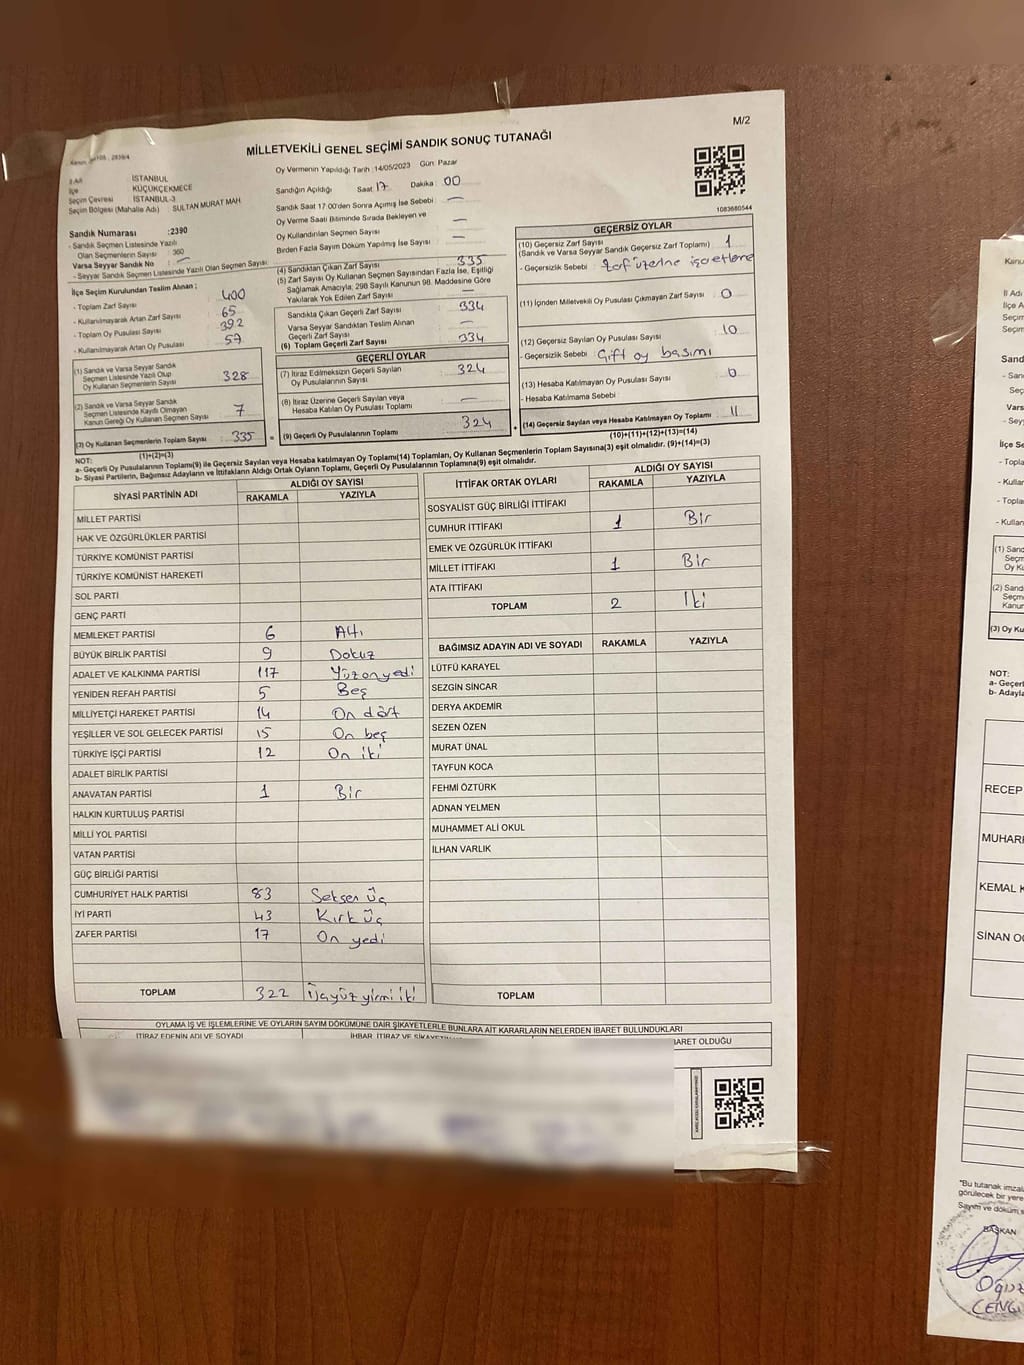 M/2
MİLLETVEKİLİ GENEL SEÇİMİ SANDIK SONUÇ TUTANAĞI
İSTANBUL
İlçe KÜÇÜKÇEKMECE
Seçim Çevresi İSTANBUL-3
Seçim Bölgesi (Mahalle Adı) : SULTAN MURAT MAH
Sandık Numarası :2390
- Sandık Seçmen Listesinde Yazılı
Olan Seçmenlerin Sayısı : 360
Varsa Seyyar Sandık No : —
- Seyyar Sandık Seçmen Listesinde Yazılı Olan Seçmen Sayısı:
Oy Vermenin Yapıldığı Tarih :14/05/2023 Gün: Pazar
Sandığın Açıldığı Saat 17 Dakika 00
Sandık Saat 17.00'den Sonra Açımış İse Sebebi —
Oy Verme Saati Bitiminde Sırada Bekleyen ve
Oy Kullandırılan Seçmen Sayısı —
Birden Fazla Sayım Döküm Yapılmış İse Sayısı —
1083680544
İlçe Seçim Kurulundan Teslim Alınan ;
- Toplam Zarf Sayısı 400
- Kullanılmayarak Artan Zarf Sayısı 65
- Toplam Oy Pusulası Sayısı 392
- Kullanılmayarak Artan Oy Pusulası 57
(1) Sandık ve Varsa Seyyar Sandık
Seçmen Listesinde Yazılı Olup
Oy Kullanan Seçmenlerin Sayısı 328
(2) Sandık ve Varsa Seyyar Sandık
Seçmen Listesinde Kayıtlı Olmayan
Kanun Gereği Oy Kullanan Seçmen Sayısı 7
(3) Oy Kullanan Seçmenlerin Toplam Sayısı 335
(1)+(2)=(3)
(4) Sandıktan Çıkan Zarf Sayısı 335
(5) Zarf Sayısı Oy Kullanan Seçmen Sayısından Fazla İse, Eşitliği
Sağlamak Amacıyla; 298 Sayılı Kanunun 98. Maddesine Göre
Yakılarak Yok Edilen Zarf Sayısı —
Sandıkta Çıkan Geçerli Zarf Sayısı 334
Varsa Seyyar Sandıktan Teslim Alınan
Geçerli Zarf Sayısı —
(6) Toplam Geçerli Zarf Sayısı 334
GEÇERLİ OYLAR
(7) İtiraz Edilmeksizin Geçerli Sayılan
Oy Pusulalarının Sayısı 324
(8) İtiraz Üzerine Geçerli Sayılan veya
Hesaba Katılan Oy Pusulası Toplamı —
= (9) Geçerli Oy Pusulalarının Toplamı 324
GEÇERSİZ OYLAR
(10) Geçersiz Zarf Sayısı 1
(Sandık ve Varsa Seyyar Sandık Geçersiz Zarf Toplamı)
- Geçersizlik Sebebi Zarf üzerine işaretleme
(11) İçinden Milletvekili Oy Pusulası Çıkmayan Zarf Sayısı 0
(12) Geçersiz Sayılan Oy Pusulası Sayısı 10
- Geçersizlik Sebebi Çift oy basımı
(13) Hesaba Katılmayan Oy Pusulası Sayısı 0
- Hesaba Katılmama Sebebi
+ (14) Geçersiz Sayılan veya Hesaba Katılmayan Oy Toplamı 11
(10)+(11)+(12)+(13)=(14)
NOT:
a- Geçerli Oy Pusulalarının Toplamı(9) ile Geçersiz Sayılan veya Hesaba katılmayan Oy Toplamı(14) Toplamları, Oy Kullanan Seçmenlerin Toplam Sayısına(3) eşit olmalıdır. (9)+(14)=(3)
b- Siyasi Partilerin, Bağımsız Adayların ve İttifakların Aldığı Ortak Oyların Toplamı, Geçerli Oy Pusulalarının Toplamına(9) eşit olmalıdır.
SİYASİ PARTİNİN ADI ALDIĞI OY SAYISI
RAKAMLA YAZIYLA
MİLLET PARTİSİ
HAK VE ÖZGÜRLÜKLER PARTİSİ
TÜRKİYE KOMÜNİST PARTİSİ
TÜRKİYE KOMÜNİST HAREKETİ
SOL PARTİ
GENÇ PARTİ
MEMLEKET PARTİSİ 6 Altı
BÜYÜK BİRLİK PARTİSİ 9 Dokuz
ADALET VE KALKINMA PARTİSİ 117 Yüzonyedi
YENİDEN REFAH PARTİSİ 5 Beş
MİLLİYETÇİ HAREKET PARTİSİ 14 On dört
YEŞİLLER VE SOL GELECEK PARTİSİ 15 On beş
TÜRKİYE İŞÇİ PARTİSİ 12 On iki
ADALET BİRLİK PARTİSİ
ANAVATAN PARTİSİ 1 Bir
HALKIN KURTULUŞ PARTİSİ
MİLLİ YOL PARTİSİ
VATAN PARTİSİ
GÜÇ BİRLİĞİ PARTİSİ
CUMHURİYET HALK PARTİSİ 83 Seksen üç
İYİ PARTİ 43 Kırk üç
ZAFER PARTİSİ 17 On yedi
TOPLAM 322 Üçyüz yirmi iki
İTTİFAK ORTAK OYLARI ALDIĞI OY SAYISI
RAKAMLA YAZIYLA
SOSYALİST GÜÇ BİRLİĞİ İTTİFAKI
CUMHUR İTTİFAKI 1 Bir
EMEK VE ÖZGÜRLÜK İTTİFAKI
MİLLET İTTİFAKI 1 Bir
ATA İTTİFAKI
TOPLAM 2 İki
BAĞIMSIZ ADAYIN ADI VE SOYADI RAKAMLA YAZIYLA
LÜTFÜ KARAYEL
SEZGİN SİNCAR
DERYA AKDEMİR
SEZEN ÖZEN
MURAT ÜNAL
TAYFUN KOCA
FEHMİ ÖZTÜRK
ADNAN YELMEN
MUHAMMET ALİ OKUL
İLHAN VARLIK
TOPLAM
OYLAMA İŞ VE İŞLEMLERİNE VE OYLARIN SAYIM DÖKÜMÜNE DAİR ŞİKAYETLERLE BUNLARA AİT KARARLARIN NELERDEN İBARET BULUNDUKLARI
İTİRAZ EDENİN ADI VE SOYADI
BARET OLDUĞU
Kanu
İl Adı
İlçe A
Seçim
Seçim
Sandı
- San
Seç
Varsa
- Sey
İlçe S
- Topla
- Kullar
- Topla
- Kullan
(1) Sand
Seçm
Oy Ku
(2) Sandı
Seçme
Kanun
(3) Oy Ku
NOT:
a- Geçerl
b- Adayla
RECEP
MUHAR
KEMAL K
SİNAN O
"Bu tutanak imzala
görülecek bir yere
Sayım ve döküm s
BAŞKAN
Oğuz
CENG